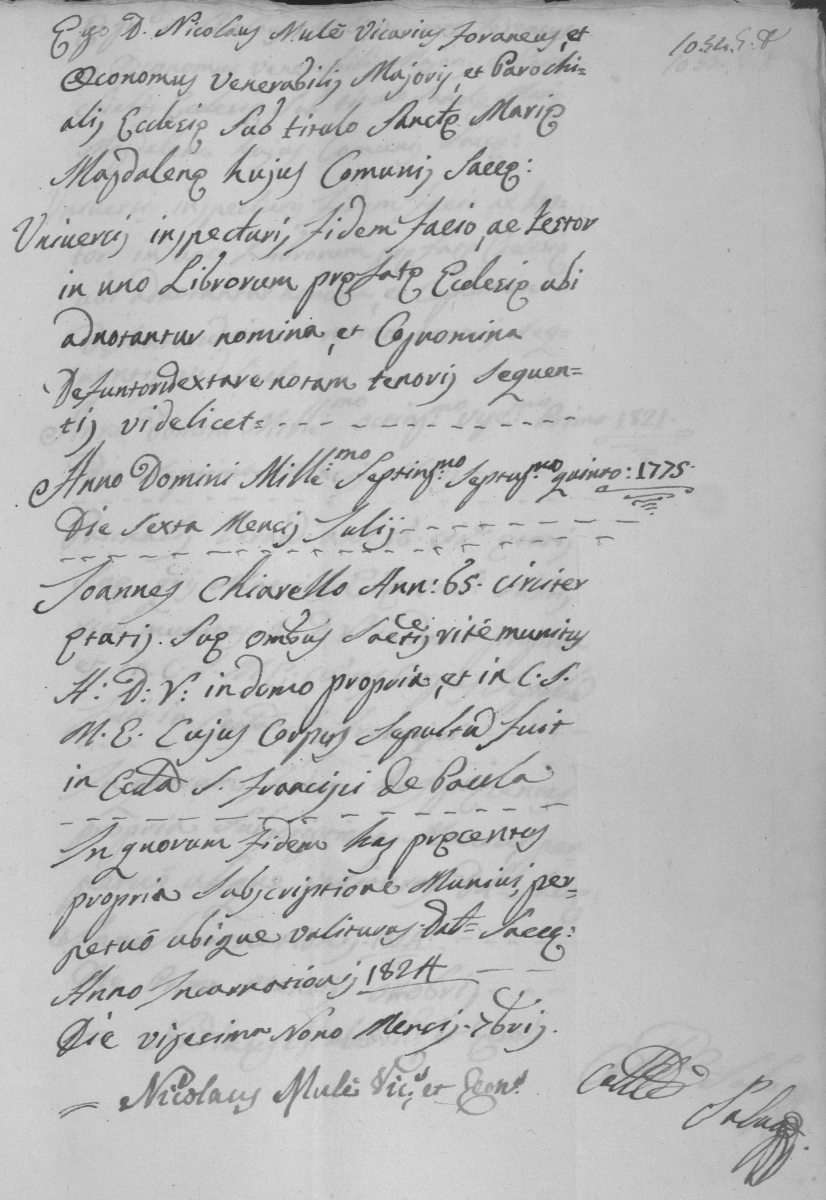 Ego D. Nicolaus Mulè Vicarius Foraneus, et
Œconomus Venerabilis Majoris, et Parochi=
alis Ecclesię Sub titulo Sanctę Marię
Magdalenę hujus Comunis Saccę:
Univercis inspecturis fidem facio, ac testor
in uno Librorum pręfatę Ecclesię ubi
adnotantur nomina, et Cognomina
Defuntorũ extare notam tenoris sequen=
tis videlicet=
Anno Domini Mille:mo Septing:mo Septuag:mo quinto: 1775.
Die Sexta Mencis Julij
Joannes Chiarello Ann: 65. circiter
ętatis. Suę ombus Sactis ritè munitus
A: D: V: in domo propria, et in C. S.
M. E. Cujus Corpus Sepultũ fuit
in Eccla S. Francisci de Paula
In quorum fidem has pręcentes
propria Subscriptione Munivi, per=
petuò ubique valituras. Dat= Saccę:
Anno Incarnationis 1824
Die vigecima Nono Mencis 7bris.
Nicolaus Mulè Vics, et Econs